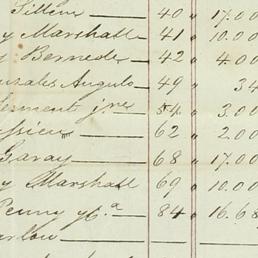 Sillem 40 " 17.00
y Marshall 41 " 10.00
Bernede 42 " 4.00
nzales Angulo 49 " 34
lement jne 54 " 3.00
ssieu 62 " 2.00
Garay 68 " 17.00
y Marshall 69 " 10.00
Penny y Ca 84 " 16.68
arlow